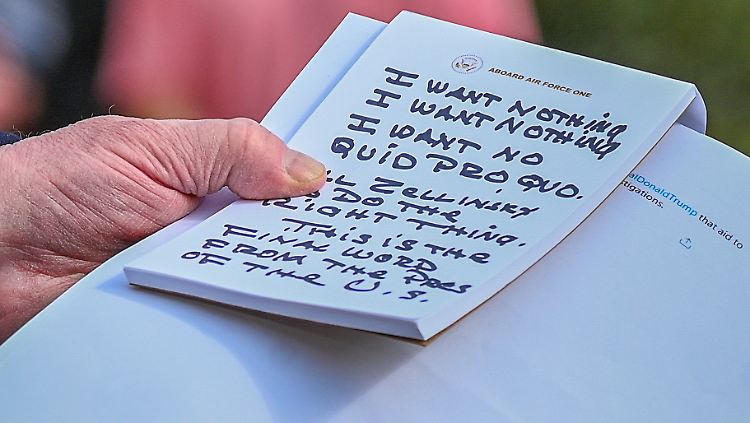 ABOARD AIR FORCE ONE
I WANT NOTHING
I WANT NOTHING
I WANT NO
QUID PRO QUO.
LL ZELLINSKY
TO DO THE
RIGHT THING.
THIS IS THE
FINAL WORD
FROM THE PRES
OF THE U.S.
alDonaldTrump that aid to
tigations.